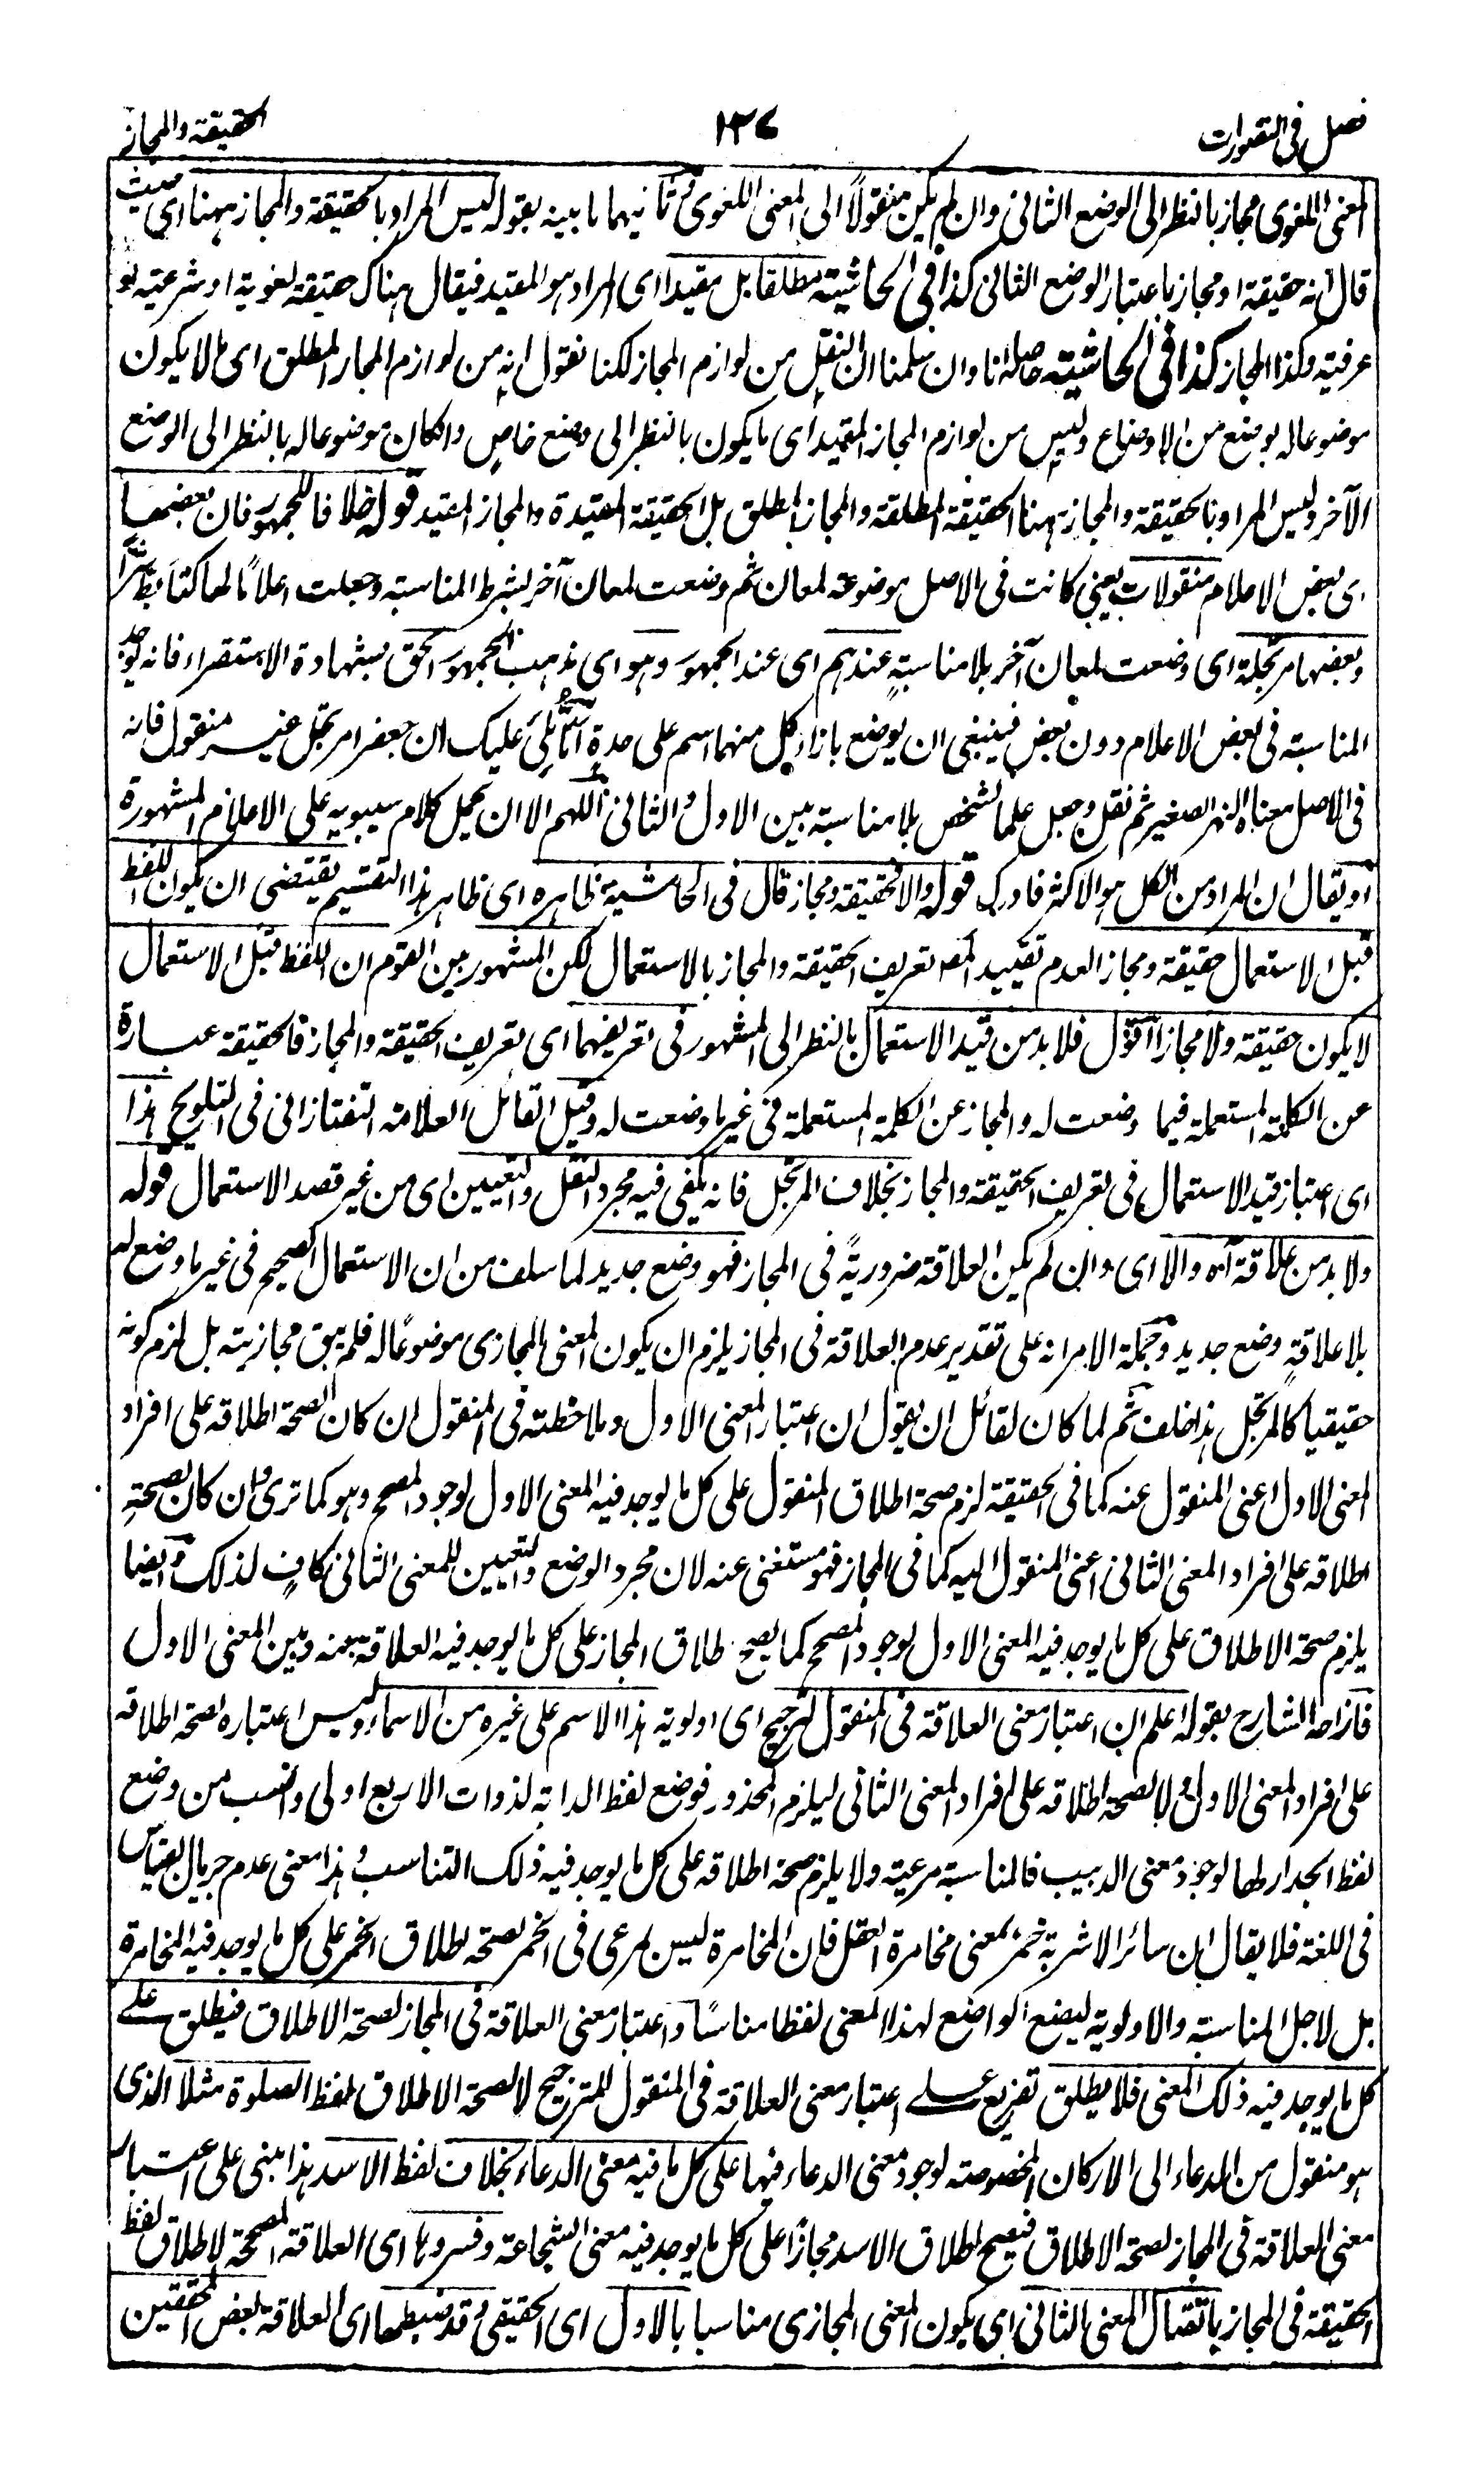 فصل فى التصورات
١٣٧
الحقيقة والمجاز
المعنى اللغوى مجاز بالنظر الى الوضع الثانى وان لم يكن منقولاً الى المعنى اللغوى وثانيهما ما بينه بقوله ليس المراد بالحقيقة والمجاز ههنا اى حيث
قال انه حقيقة او مجاز باعتبار الوضع الثانى كذا فى الحاشية مطلقا بل مقيدا اى المراد هو المقيد فيقال هناك حقيقة لغوية او شرعية او
عرفية وكذا المجاز كذا فى الحاشية حاصله انا وان سلمنا ان النقل من لوازم المجاز لكنا نقول انه من لوازم المجاز المطلق اى ما لا يكون
موضوعا له بوضع من الاوضاع وليس من لوازم المجاز المقيد اى ما يكون بالنظر الى وضع خاص وان كان موضوعا له بالنظر الى الوضع
الآخر وليس المراد بالحقيقة والمجاز ههنا الحقيقة المطلقة والمجاز المطلق بل الحقيقة المقيدة والمجاز المقيد قوله خلافا للجمهور فان بعضها
اى بعض الاعلام منقولات يعنى كانت فى الاصل موضوعة لمعان ثم وضعت لمعان آخر بشرط المناسبة وجعلت اعلاماً لها كتأبط شراً
وبعضها مرتجلة اى وضعت لمعان آخر بلا مناسبةٍ عندهم اى عند الجمهور وهو اى مذهب الجمهور الحق بشهادة الاستقراء فانه يوجد
المناسبة فى بعض الاعلام دون بعض فينبغى ان يوضع بازاء كل منهما اسم على حدةٍ اما يُتلىٰ عليك ان جعفرا مرتجل غير منقول فانه
فى الاصل معناه النهر الصغير ثم نقل وجعل علما لشخص بلا مناسبة بين الاول والثانى اللهم الا ان يحمل كلام سيبويه على الاعلام المشهورة
او يقال ان المراد من الكل هو الاكثر فادرك قوله والا فحقيقة ومجاز قال فى الحاشية ظاهره اى ظاهر هذا التقسيم يقتضى ان يكون اللفظ
قبل الاستعمال حقيقة ومجازا لعدم تقييد المص تعريف الحقيقة والمجاز بالاستعمال لكن المشهور بين القوم ان اللفظ قبل الاستعمال
لا يكون حقيقة ولا مجازا اقول فلا بد من قيد الاستعمال بالنظر الى المشهور فى تعريفهما اى تعريف الحقيقة والمجاز فالحقيقة عبارة
عن الكلمة المستعملة فيما وضعت له والمجاز عن الكلمة المستعملة فى غير ما وضعت له وقيل القائل العلامة التفتازانى فى التلويح هذا
اى اعتبار قيد الاستعمال فى تعريف الحقيقة والمجاز بخلاف المرتجل فانه يكفى فيه مجرد النقل والتعيين اى من غير قصد الاستعمال قوله
ولا بد من علاقة آه والا اى وان لم يكن العلاقة ضروريةً فى المجاز فهو وضع جديد لما سلف من ان الاستعمال الصحيح فى غير ما وضع له
بلا علاقةٍ وضع جديد وجملة الامر انه على تقدير عدم العلاقة فى المجاز يلزم ان يكون المعنى المجازى موضوعًا له فلم يبق مجازيته بل لزم كونه
حقيقيا كالمرتجل هذا خلف ثم لما كان لقائل ان يقول ان اعتبار المعنى الاول وملاحظته فى المنقول ان كان لصحة اطلاقه على افراد
المعنى الاول اعنى المنقول عنه كما فى الحقيقة لزم صحة اطلاق المنقول على كل ما يوجد فيه المعنى الاول لوجود المصحح وهو كما ترى وان كان لصحة
اطلاقه على افراد المعنى الثانى اعنى المنقول اليه كما فى المجاز فهو مستغنى عنه لان مجرد الوضع والتعيين للمعنى الثانى كافٍ لذلك وايضا
يلزم صحة الاطلاق على كل ما يوجد فيه المعنى الاول لوجود المصحح كما يصح اطلاق المجاز على كل ما يوجد فيه العلاقة بينه وبين المعنى الاول
فازاحه الشارح بقوله اعلم ان اعتبار معنى العلاقة فى المنقول لترجيح اى اولوية هذا الاسم على غيره من الاسماء وليس اعتباره لصحة اطلاقه
على افراد المعنى الاول ولا لصحة اطلاقه على افراد المعنى الثانى ليلزم المحذور فوضع لفظ الدابة لذوات الاربع اولى وانسب من وضع
لفظ الجدار لها لوجود معنى الدبيب فالمناسبة مرعية ولا يلزم صحة اطلاقه على كل ما يوجد فيه ذلك التناسب وهذا معنى عدم جريان القياس
فى اللغة فلا يقال ان سائر الاشربة خمر بمعنى مخامرة العقل فان المخامرة ليس لمرعى فى الخمر لصحة اطلاق الخمر على كل ما يوجد فيه المخامرة
بل لاجل المناسبة والاولوية ليضع الواضع لهذا المعنى لفظا مناسبًا واعتبار معنى العلاقة فى المجاز لصحة الاطلاق فيطلق على
كل ما يوجد فيه ذلك المعنى فلا يطلق تفريع على اعتبار معنى العلاقة فى المنقول للترجيح لا لصحة الاطلاق لفظ الصلوة مثلا الذى
هو منقول من الدعاء الى الاركان المخصوصة لوجود معنى الدعاء فيها على كل ما فيه معنى الدعاء بخلاف لفظ الاسد هذا مبنى على اعتبار
معنى العلاقة فى المجاز لصحة الاطلاق فيصح اطلاق الاسد مجازًا على كل ما يوجد فيه معنى الشجاعة وفسروها اى العلاقة المصححة لاطلاق لفظ
الحقيقة فى المجاز باتصال المعنى الثانى اى يكون المعنى المجازى مناسبا بالاول اى الحقيقى وقد ضبطها اى العلاقة بعض المحققين